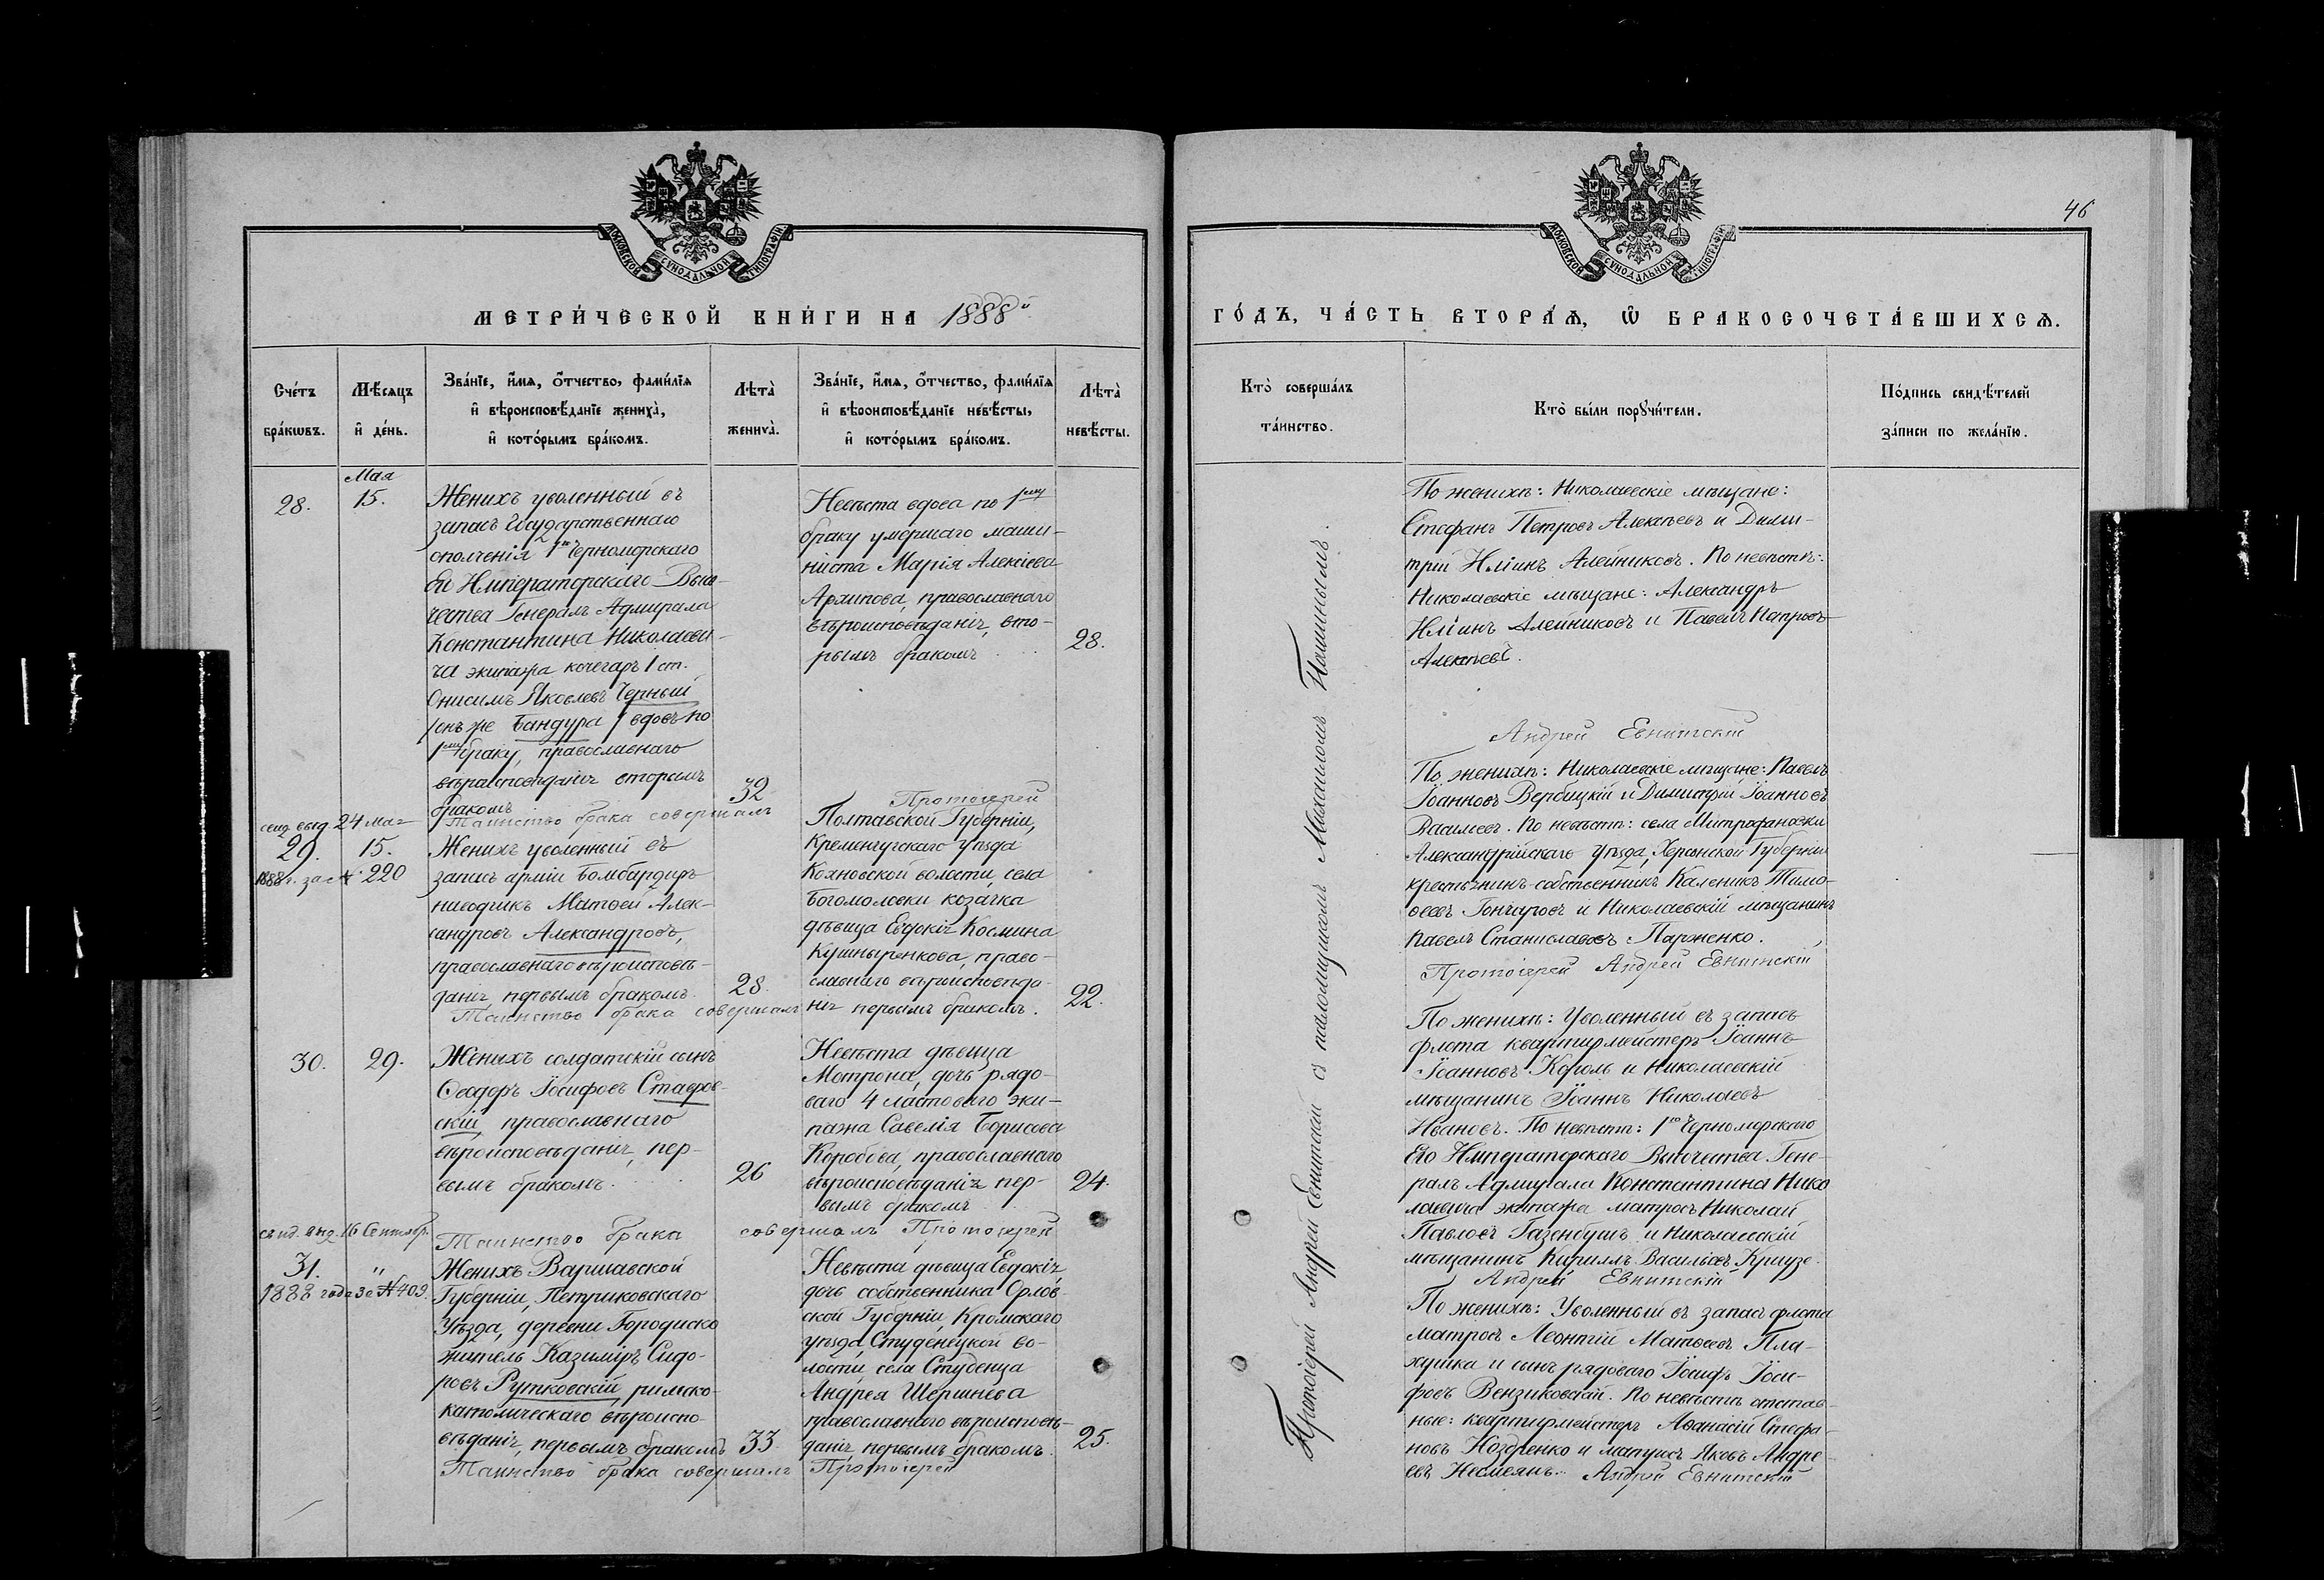 МОСКОВСКОЙ СѴНОДАЛЬНОЙ ТИПОГРАФІИ
МЕТРИ́ЧЕСКОЙ КНИ́ГИ НА 1888й
Сче́тъ бра́кѡвъ.
Мѣ́сяцъ и҆ де́нь.
Зва́нїе, и҆́мѧ, ѻ҆́тчество, фами́лїѧ
и҆ вѣроисповѣ́данїе жениха̀,
и҆ кото́рымъ бра́комъ.
Лѣта̀ жениха̀.
Зва́нїе, и҆́мѧ, ѻ҆́тчество, фами́лїѧ
и҆ вѣроисповѣ́данїе невѣ́сты,
и҆ кото́рымъ бра́комъ.
Лѣта̀ невѣ́сты.
Мая
28.
15.
Женихъ уволенный въ
запасъ Государственнаго
ополченія 1го Черноморскаго
Его Императорскаго Высо-
чества Генералъ Адмирала
Константина Николаеви-
ча экипажа кочегаръ 1 ст.
Онисимъ Яковлевъ Черный
/онъ же Бандура/ вдовъ по
1му браку, православнаго
вѣроисповѣданія вторымъ
бракомъ
32
Невѣста вдова по 1му
браку умершаго маши-
ниста Марія Алексіева
Архипова, православнаго
вѣроисповѣданія, вто-
рымъ бракомъ
28.
Таинство брака совершалъ Протоіерей
свид. выд. 24 мая
29.
15.
1888 г. за № 220
Женихъ уволенный въ
запасъ арміи бомбардиръ
наводчикъ Матѳей Алек-
сандровъ Александровъ,
православнаго вѣроисповѣ-
данія, первымъ бракомъ.
28.
Полтавской Губерніи,
Кременчугскаго Уѣзда
Кохновской волости, села
Богомоловки козачка
дѣвица Евдокія Космина
Кушныренкова, право-
славнаго вѣроисповѣда-
нія первымъ бракомъ.
22.
Таинство брака совершалъ
30.
29.
Женихъ солдатскій сынъ
Ѳеодоръ Іосифовъ Ставров-
скій, православнаго
вѣроисповѣданія, пер-
вымъ бракомъ.
26
Невѣста дѣвица
Матрона, дочь рядо-
ваго 4 ластоваго эки-
пажа Савелія Борисова
Коробова, православнаго
вѣроисповѣданія пер-
вымъ бракомъ
24.
свид. выд. 16 Сентябр.
Таинство брака совершалъ Протоіерей
31.
"
1888 года за № 409.
Женихъ Варшавской
Губерніи, Петриковскаго
Уѣзда, деревни Городиско
житель Казиміръ Сидо-
ровъ Рутковскій, римско-
католическаго вѣроиспо-
вѣданія, первымъ бракомъ
33
Невѣста дѣвица Евдокія
дочь собственника Орлов-
ской Губерніи, Кромскаго
уѣзда, Студенецкой во-
лости, села Студенца
Андрея Шершнева
православнаго вѣроисповѣ-
данія, первымъ бракомъ.
25.
Таинство брака совершалъ Протоіерей
46
МОСКОВСКОЙ СѴНОДАЛЬНОЙ ТИПОГРАФІИ
ГО́ДЪ, ЧА́СТЬ ВТОРА́Ѧ, Ѽ БРАКОСОЧЕТА́ВШИХСѦ.
Кто̀ соверша́лъ та́инство.
Кто̀ бы́ли порꙋчи́тели.
По́дпись свидѣ́телей
за́писи по жела́нїю.
Протоіерей Андрей Евнитскій съ псаломщикомъ Михаиломъ
По женихѣ: Николаевскіе мѣщане:
Стефанъ Петровъ Алексѣевъ и Дими-
трій Иліинъ Алейниковъ. По невѣстѣ:
Николаевскіе мѣщане: Александръ
Иліинъ Алейниковъ и Павелъ Петровъ
Алексѣевъ.
Андрей Евнитскій
По женихѣ: Николаевскіе мѣщане: Павелъ
Іоанновъ Вербицкій и Димитрій Іоанновъ
Василевъ. По невѣстѣ: села Митрофановки
Александрійскаго уѣзда, Херсонской Губерніи
крестьянинъ-собственникъ Каленикъ Тимо-
ѳеевъ Гончаровъ и Николаевскій мѣщанинъ
Павелъ Станиславовъ Парженко.
Протоіерей Андрей Евнитскій
По женихѣ: Уволенный въ запасъ
флота квартирмейстеръ Іоаннъ
Іоанновъ Король и Николаевскій
мѣщанинъ Іоаннъ Николаевъ
Ивановъ. По невѣстѣ: 1го Черноморскаго
Его Императорскаго Высочества Гене-
ралъ Адмирала Константина Нико-
лаевича экипажа матросъ Николай
Павловъ Газенбушъ и Николаевскій
мѣщанинъ Кириллъ Васильевъ Краузе.
Андрей Евнитскій
По женихѣ: Уволенный въ запасъ флота
матросъ Леонтій Матѳеевъ Пла-
хушка и сынъ рядоваго Іосифъ Іоси-
фовъ Вензиковскій. По невѣстѣ отстав-
ные: квартирмейстеръ Аѳанасій Стефа-
новъ Ноздренко и матросъ Яковъ Андре-
евъ Несмеянъ. Андрей Евнитскій